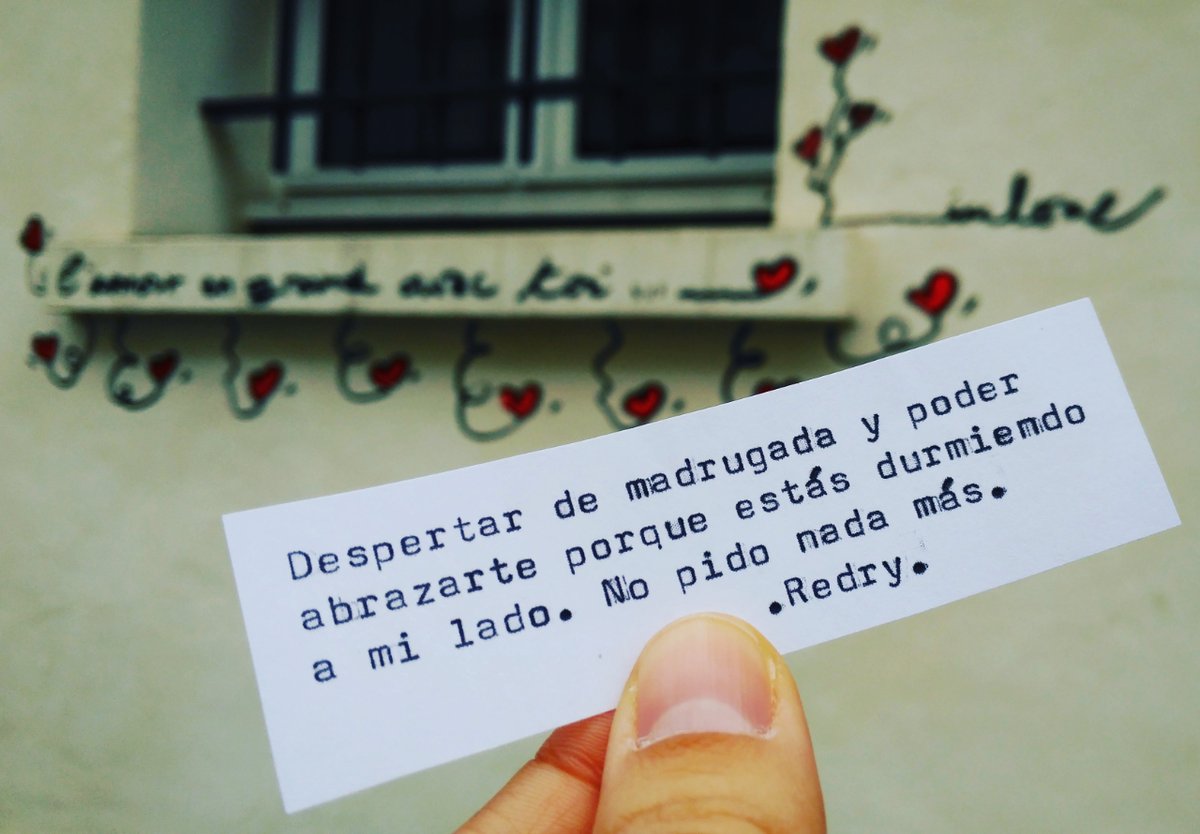 l'amour en grand avec toi ....
in love
Despertar de madrugada y poder
abrazarte porque estás durmiendo
a mi lado. No pido nada más.
.Redry.